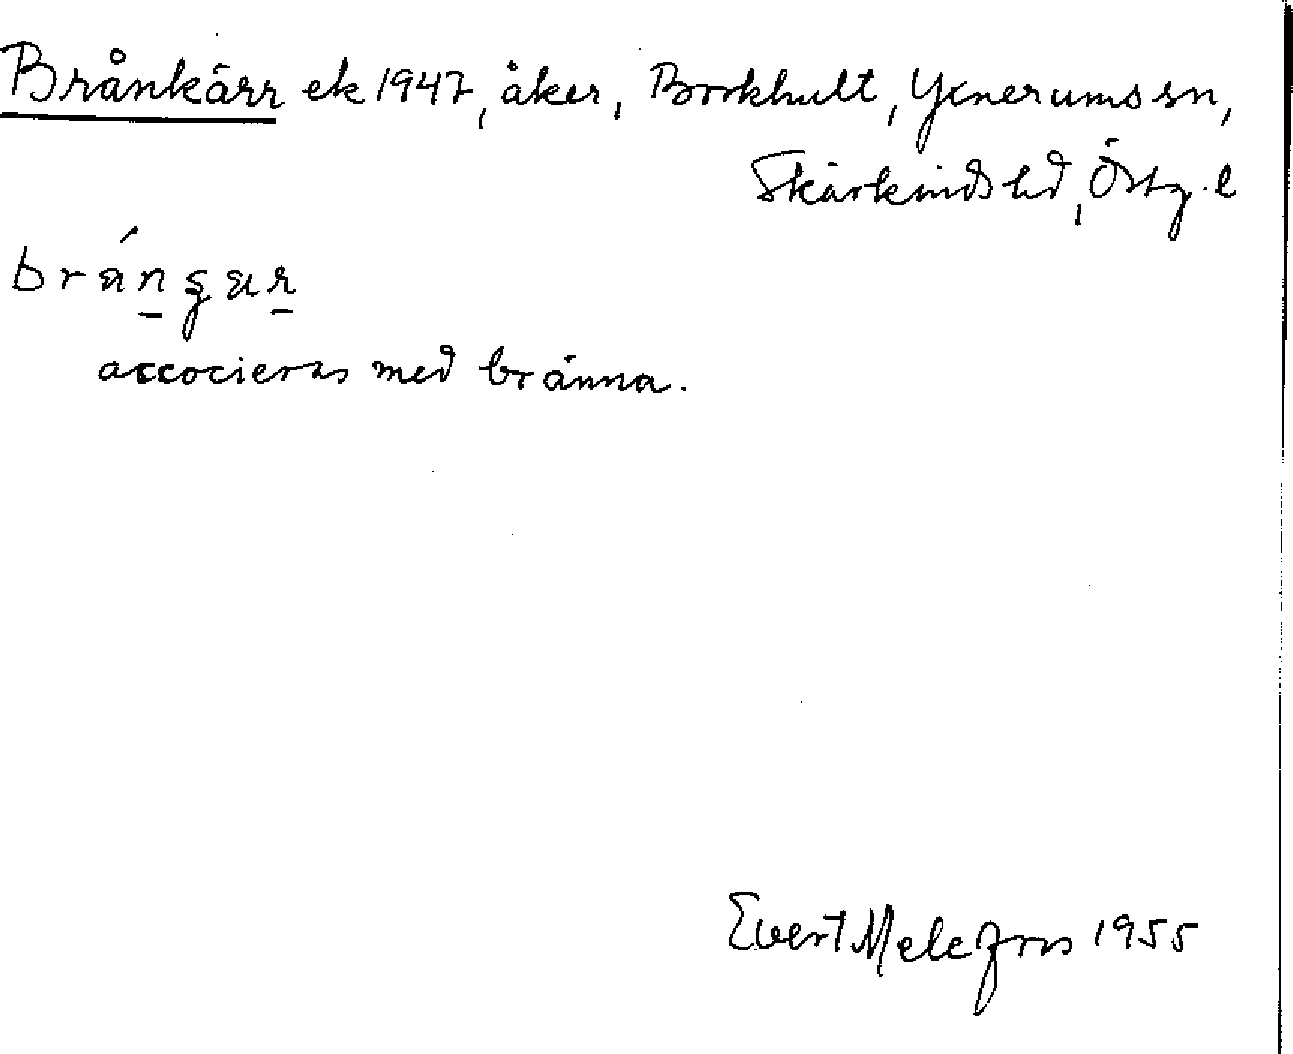 Brånkärr ek 1947, åker, Borkhult, Yxnerums sn,
Skärkinds hd, Östg. l
accocieras med bränna.
Evert Melefors 1955